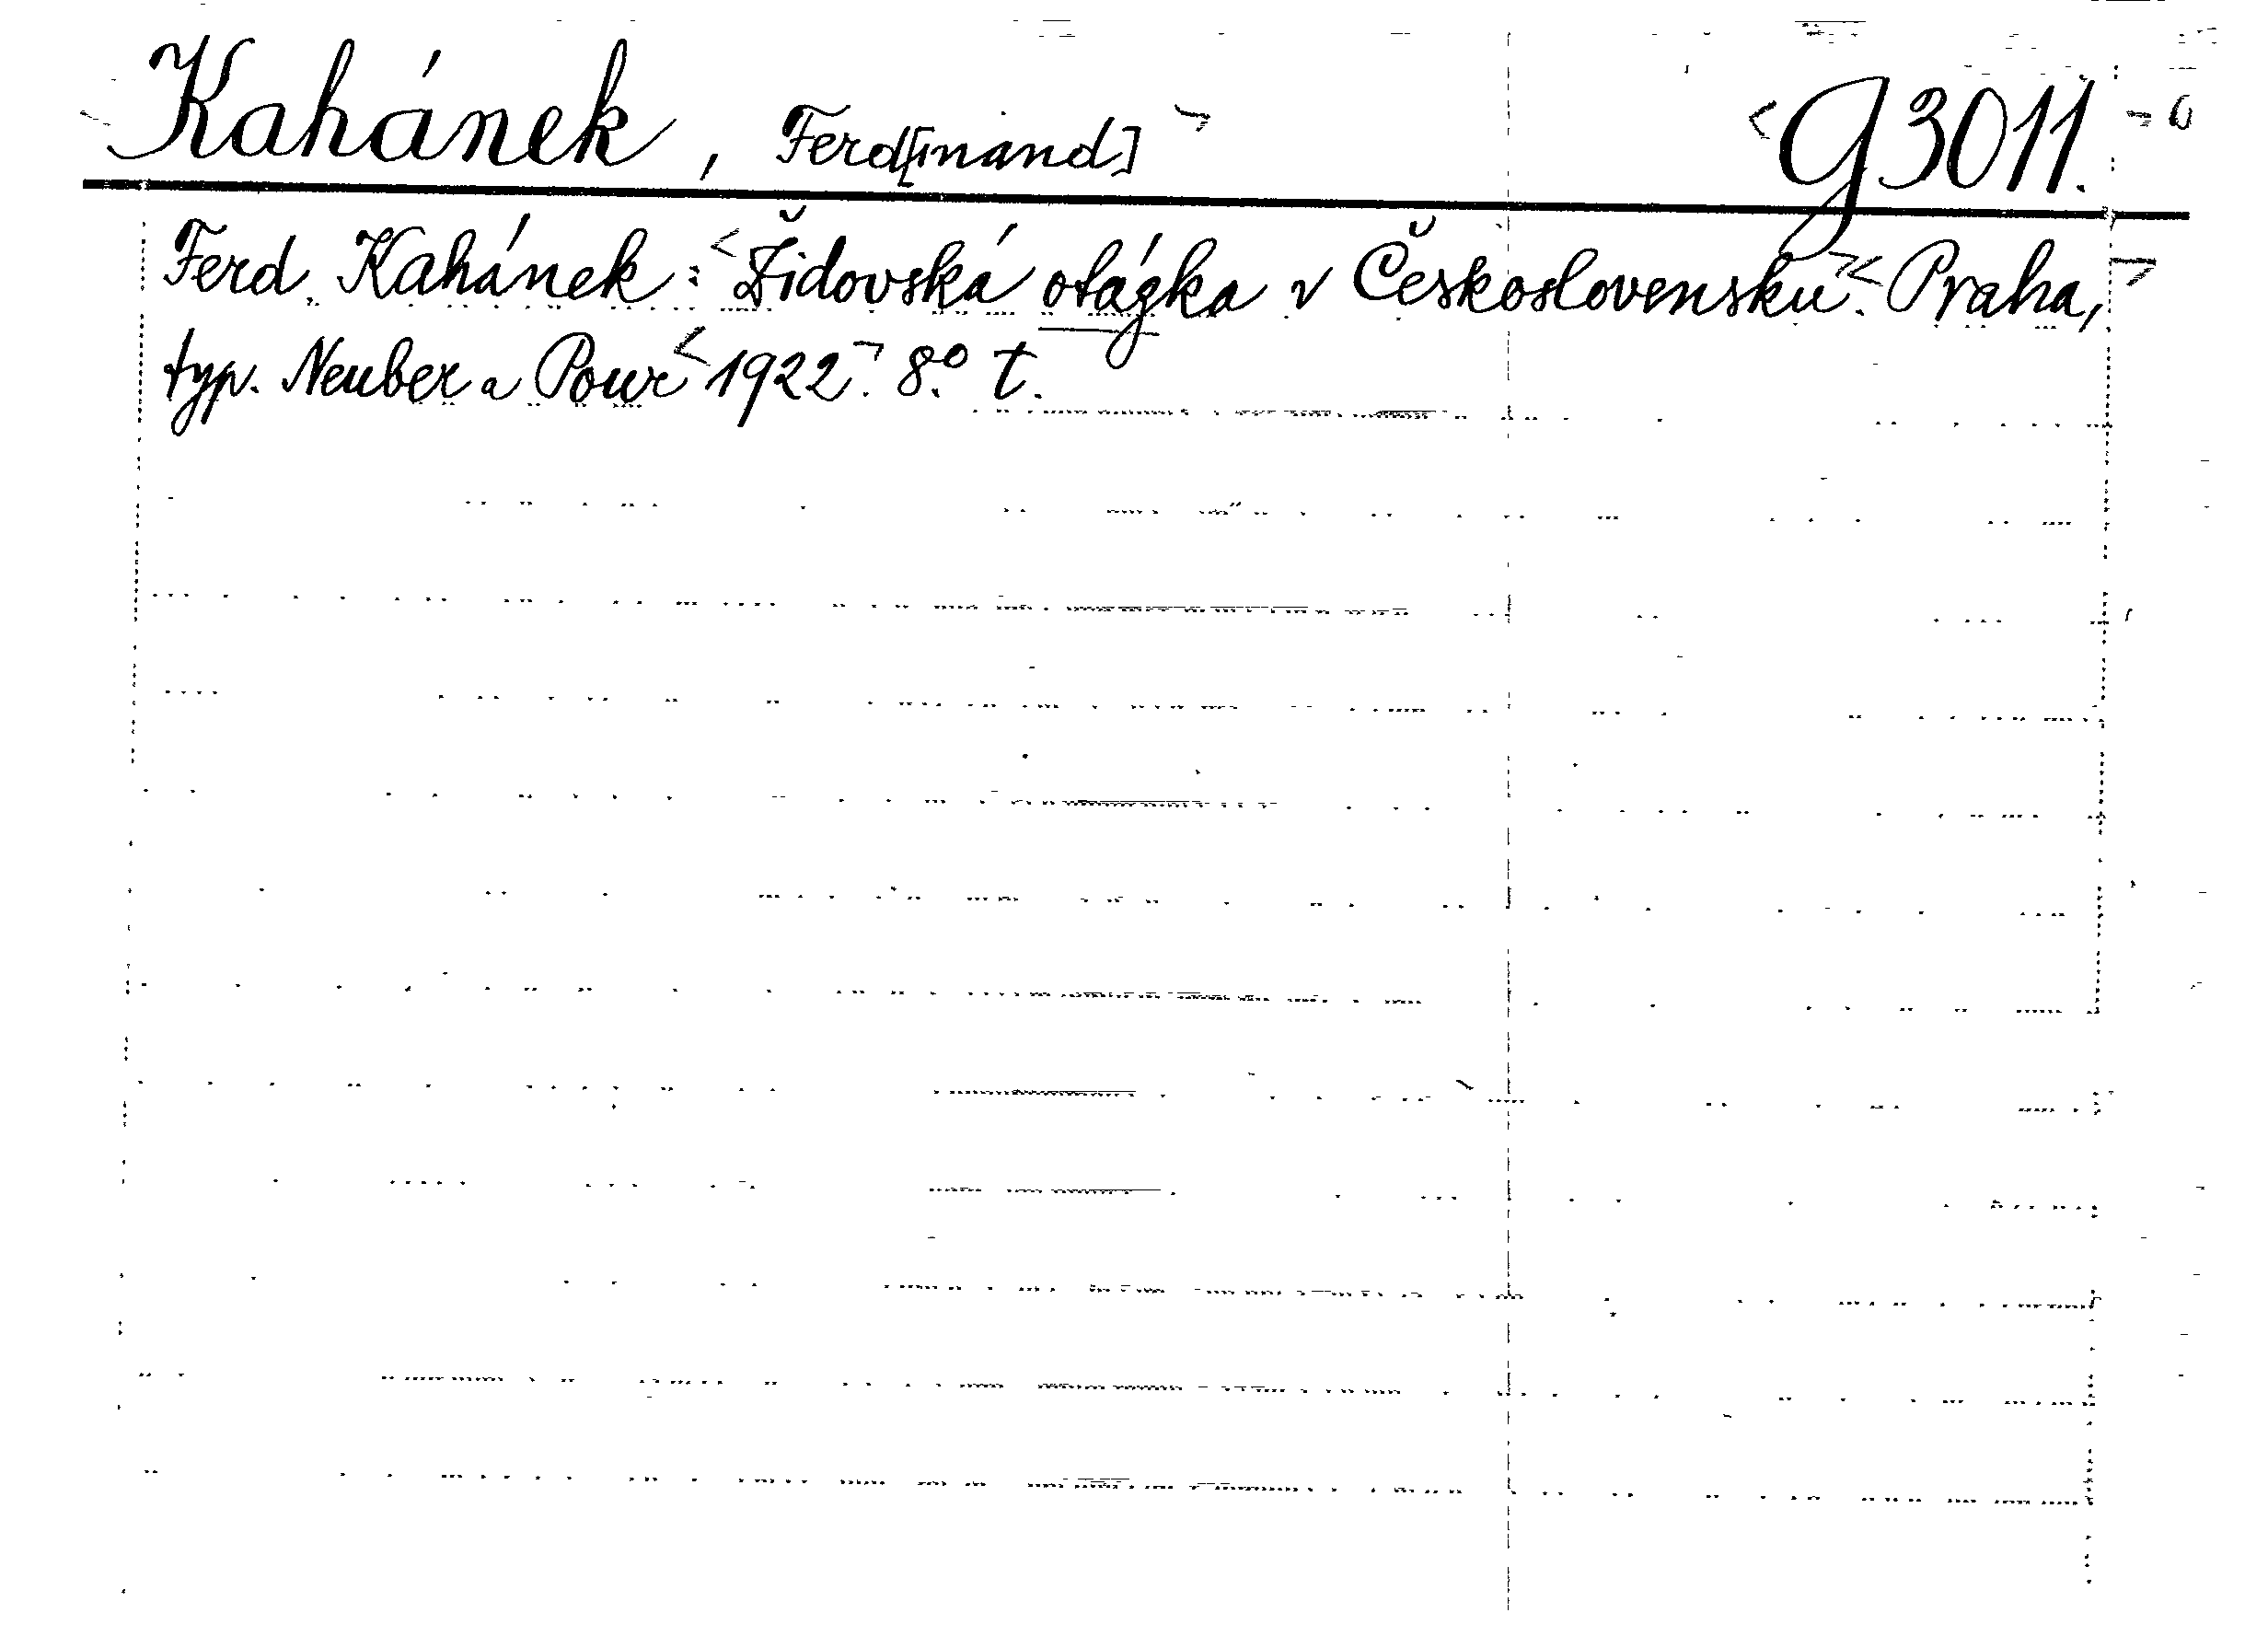 Kahánek, Ferd[inand] G 3011.
Ferd. Kahánek: Židovská otázka v Československu. Praha,
typ. Neuber a Pour 1922. 8.° t.